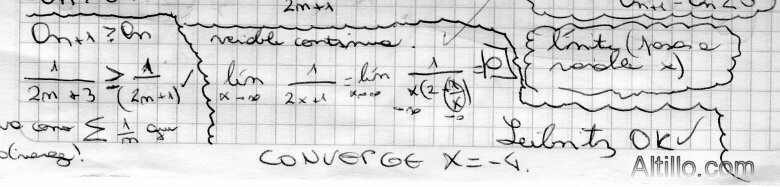 2n+1
a_{n+1} - a_n ≤ 0
a_{n+1} ? a_n
1/(2n+3) ≥ 1/(2n+1) ✓
como Σ 1/n que
variable continua. ✓
lím x→∞ 1/(2x+1) = lím x→∞ 1/(x(2+1/x)) = 0
límite (paso a
variable x)
Leibnitz OK ✓
CONVERGE X=-4.
Altillo.com